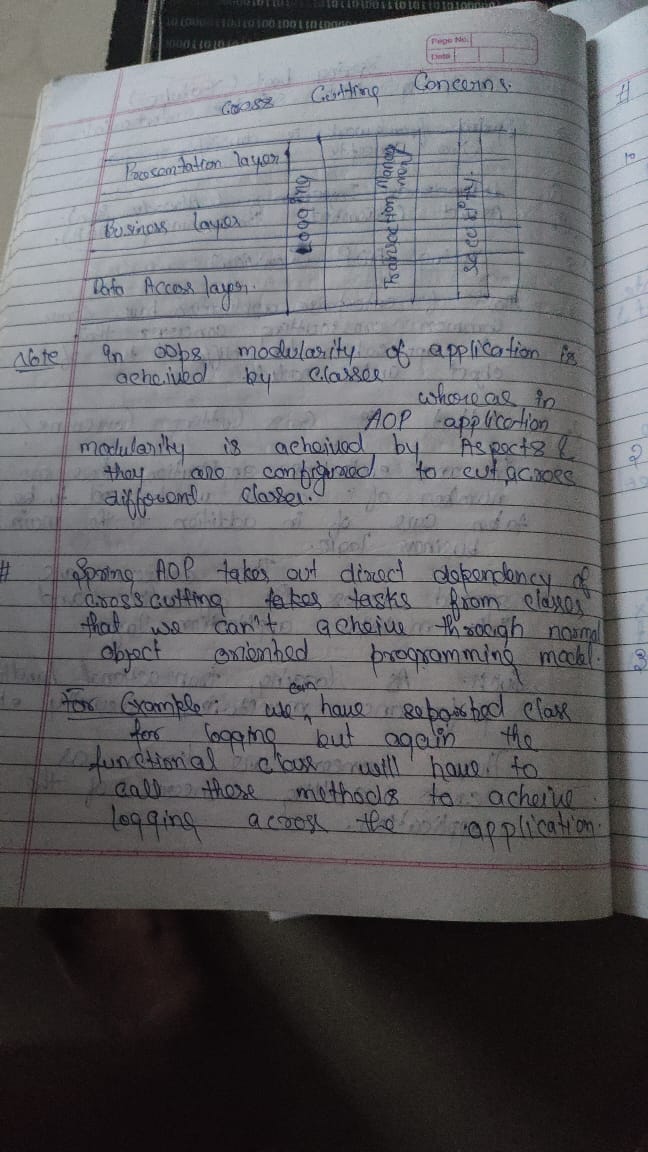 Page No.
Date
Cross Cutting Concerns.
Presentation layer
Business layer
Data Access layer.
Logging
Transaction Manag
Security.
Note In oops modularity of application is
acheived by classes
whereas in
AOP application
modularity is acheived by Aspects &
they are configured to cut across
different classes.
# Spring AOP takes out direct dependency of
crosscutting takes tasks from classes
that we can't acheive through normal
object oriented programming model.
For Example: we can have separated class
for logging but again the
functional class will have to
call these methods to acheive
logging across the application.